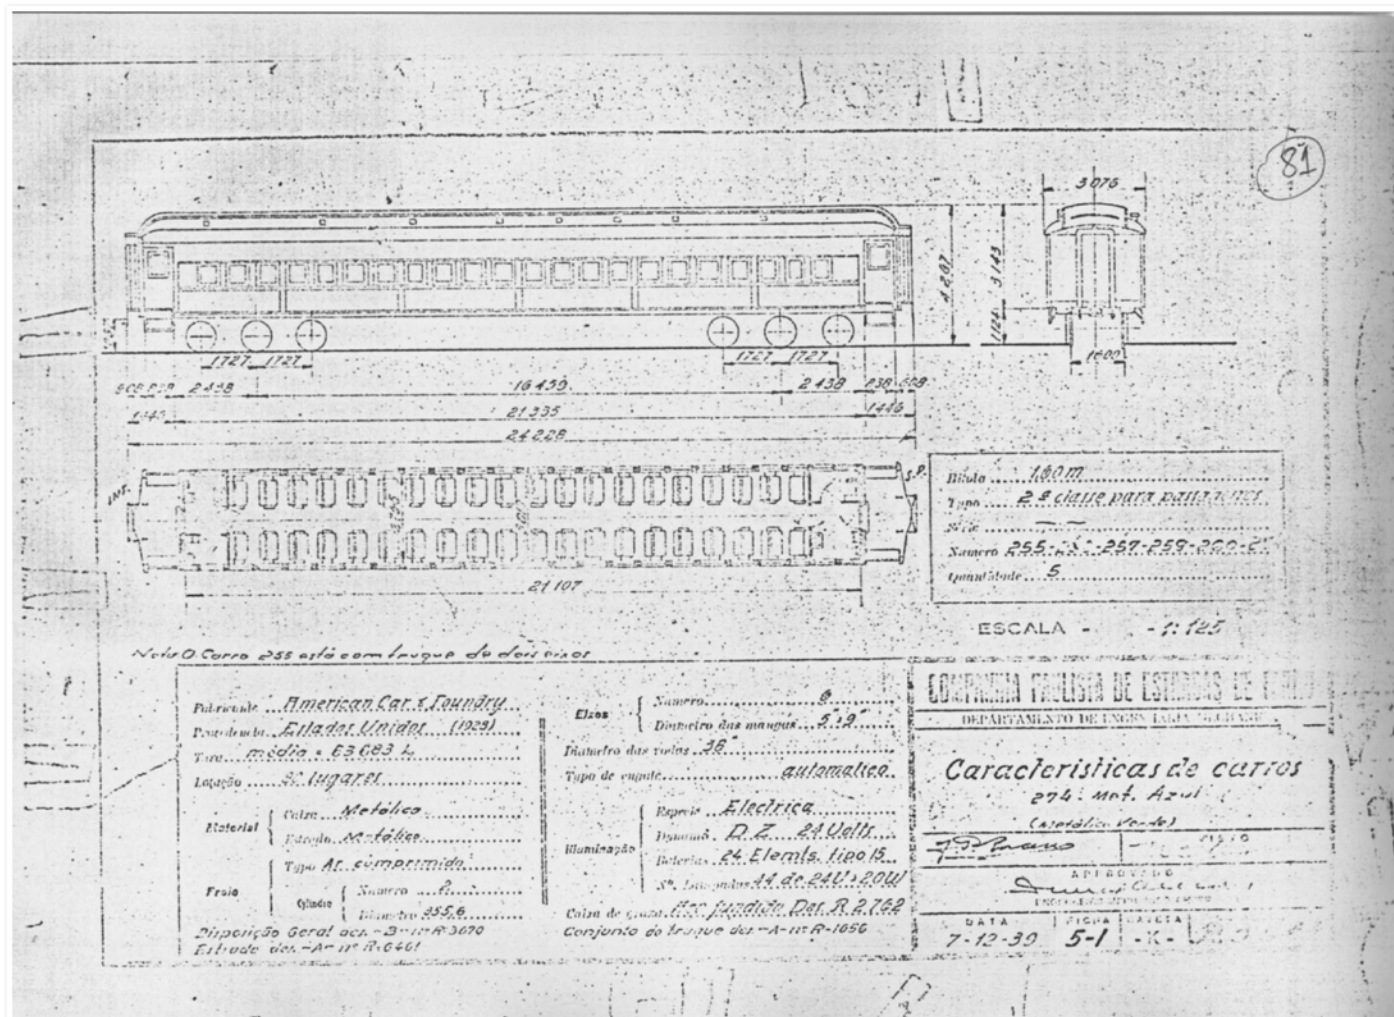 81
3 075
4 267
3 143
1124
1600
1727 1727
1727 1727
2 438
16 459
2 438
238
21 335
1446
24 228
INT.
21 107
Bitola 1,60 m
Typo 2ª classe para passageiros
Serie
Numero 255- -257-259-260-
Quantidade 5
ESCALA - - 1:125
Nota O Carro 255 está com truque de dois eixos
Fabricante American Car & Foundry
Procedencia Estados Unidos
Tara média = 63 683 k
Lotação lugares
Material
Caixa Metálica
Estrado Metálico
Freio
Typo Ar comprimido
Cylindro
Numero
Diametro 355,6
Disposição Geral des. -B- nº R-3070
Estrado des. -A- nº R-6461
Eixos
Numero 6
Diametro das mangas 5"x9"
Diametro das rodas 38"
Typo de engate automatico
Illuminação
Especie Electrica
Dynamo D. Z. 24 Volts
Baterias 24 Elemts. tipo 15
Nº. lampadas 44 de 24V x 20W
Caixa de graxa Fer. fundido Des. R 2762
Conjunto do truque des. -A- nº R-1056
COMPANHIA PAULISTA DE ESTRADAS DE FERRO
DEPARTAMENTO DE
Caracteristicas de carros
274: Mat. Azul
(Metálico Verde)
VISTO
APPROVADO
DATA
7-12-39
FICHA
5-1
GAVETA
-K-